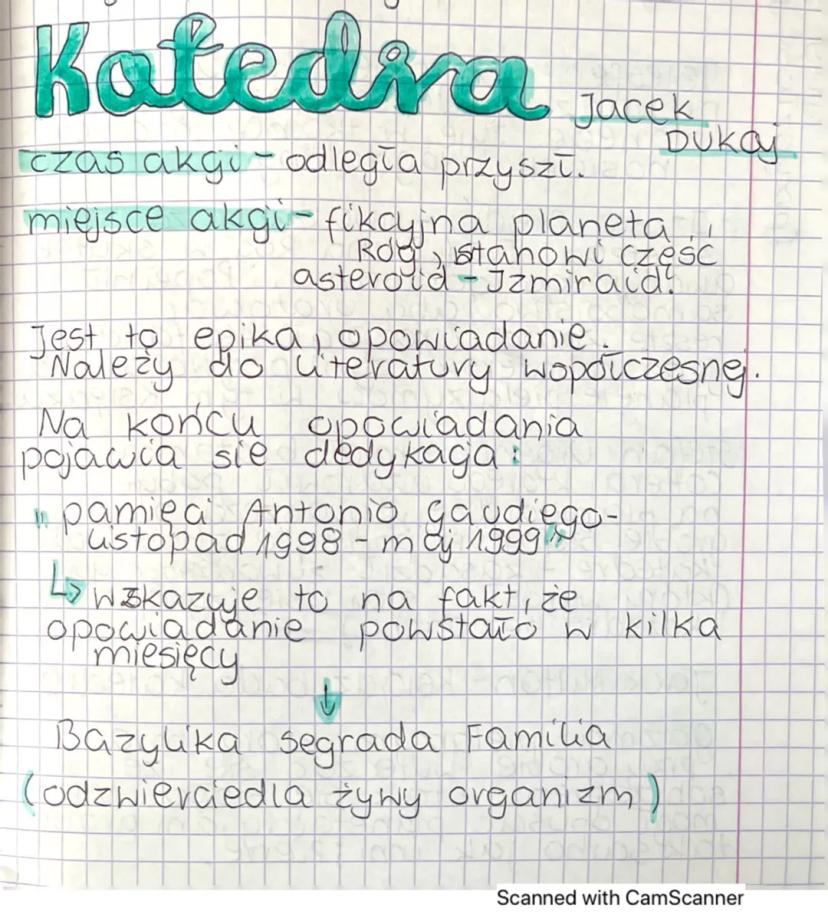 Katedra
Jacek
Dukaj
czas akcji - odległa przyszł.
miejsce akcji - fikcyjna planeta
Róg, stanowi część
asteroid - Izmiraid.
Jest to epika, opowiadanie.
Należy do literatury wspołczesnej.
Na końcu opowiadania
pojawia sie dedykacja:
"pamięci Antonio Gaudiego-
listopad 1998 - maj 1999"
↳ wskazuje to na fakt, że
opowiadanie powstało w kilka
miesięcy
↓
Bazylika Segrada Familia
(odzwierciedla żywy organizm)
Scanned with CamScanner